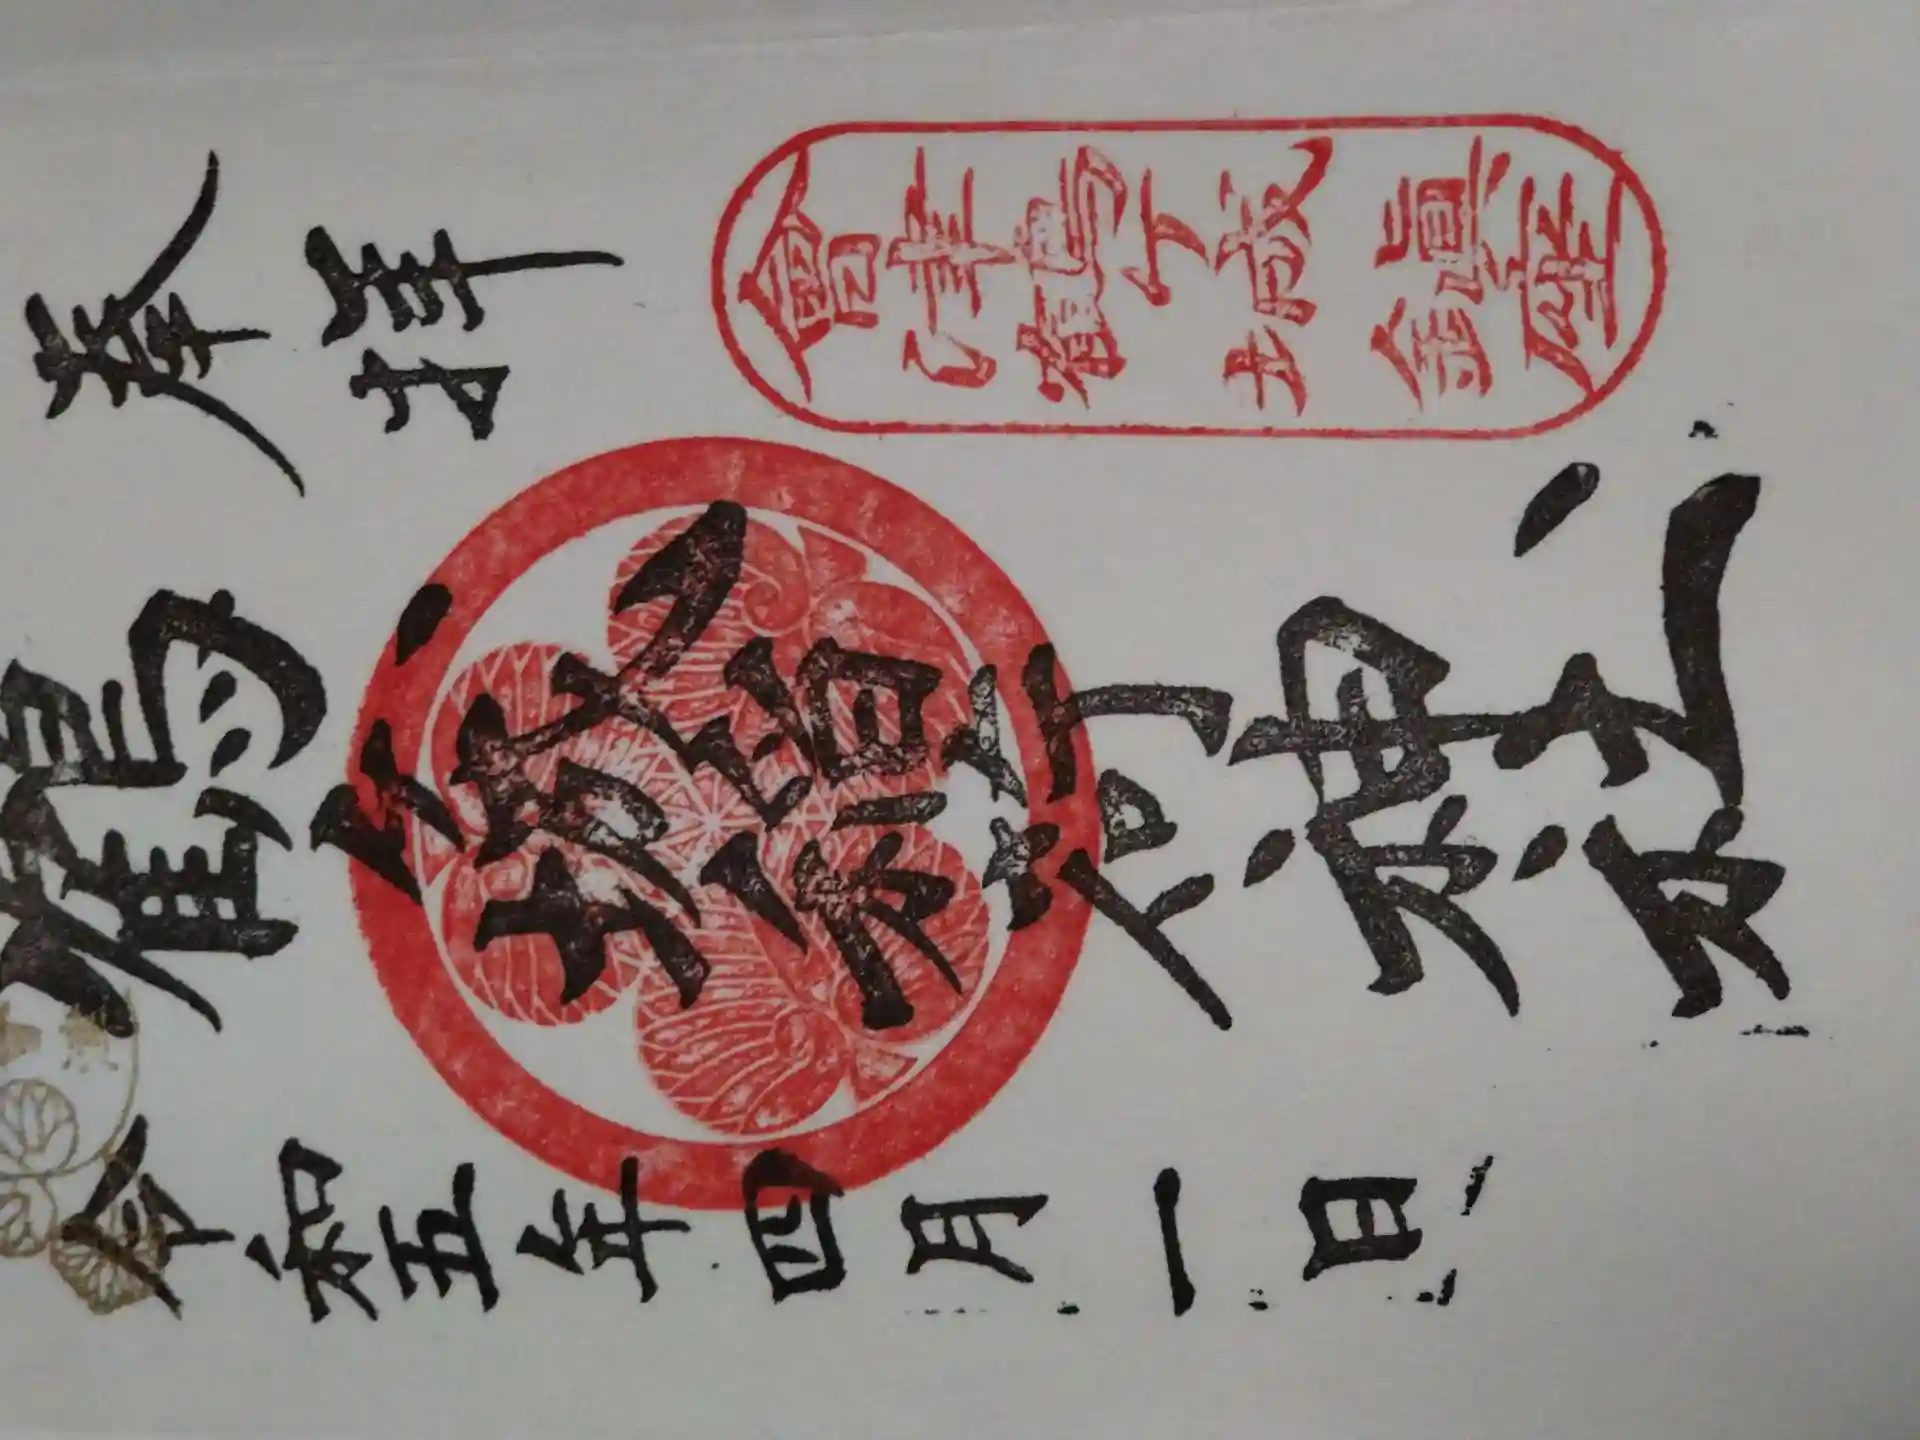 奉拝
會津鶴ヶ城鎮座
鶴ヶ城稲荷神社
令和五年四月一日